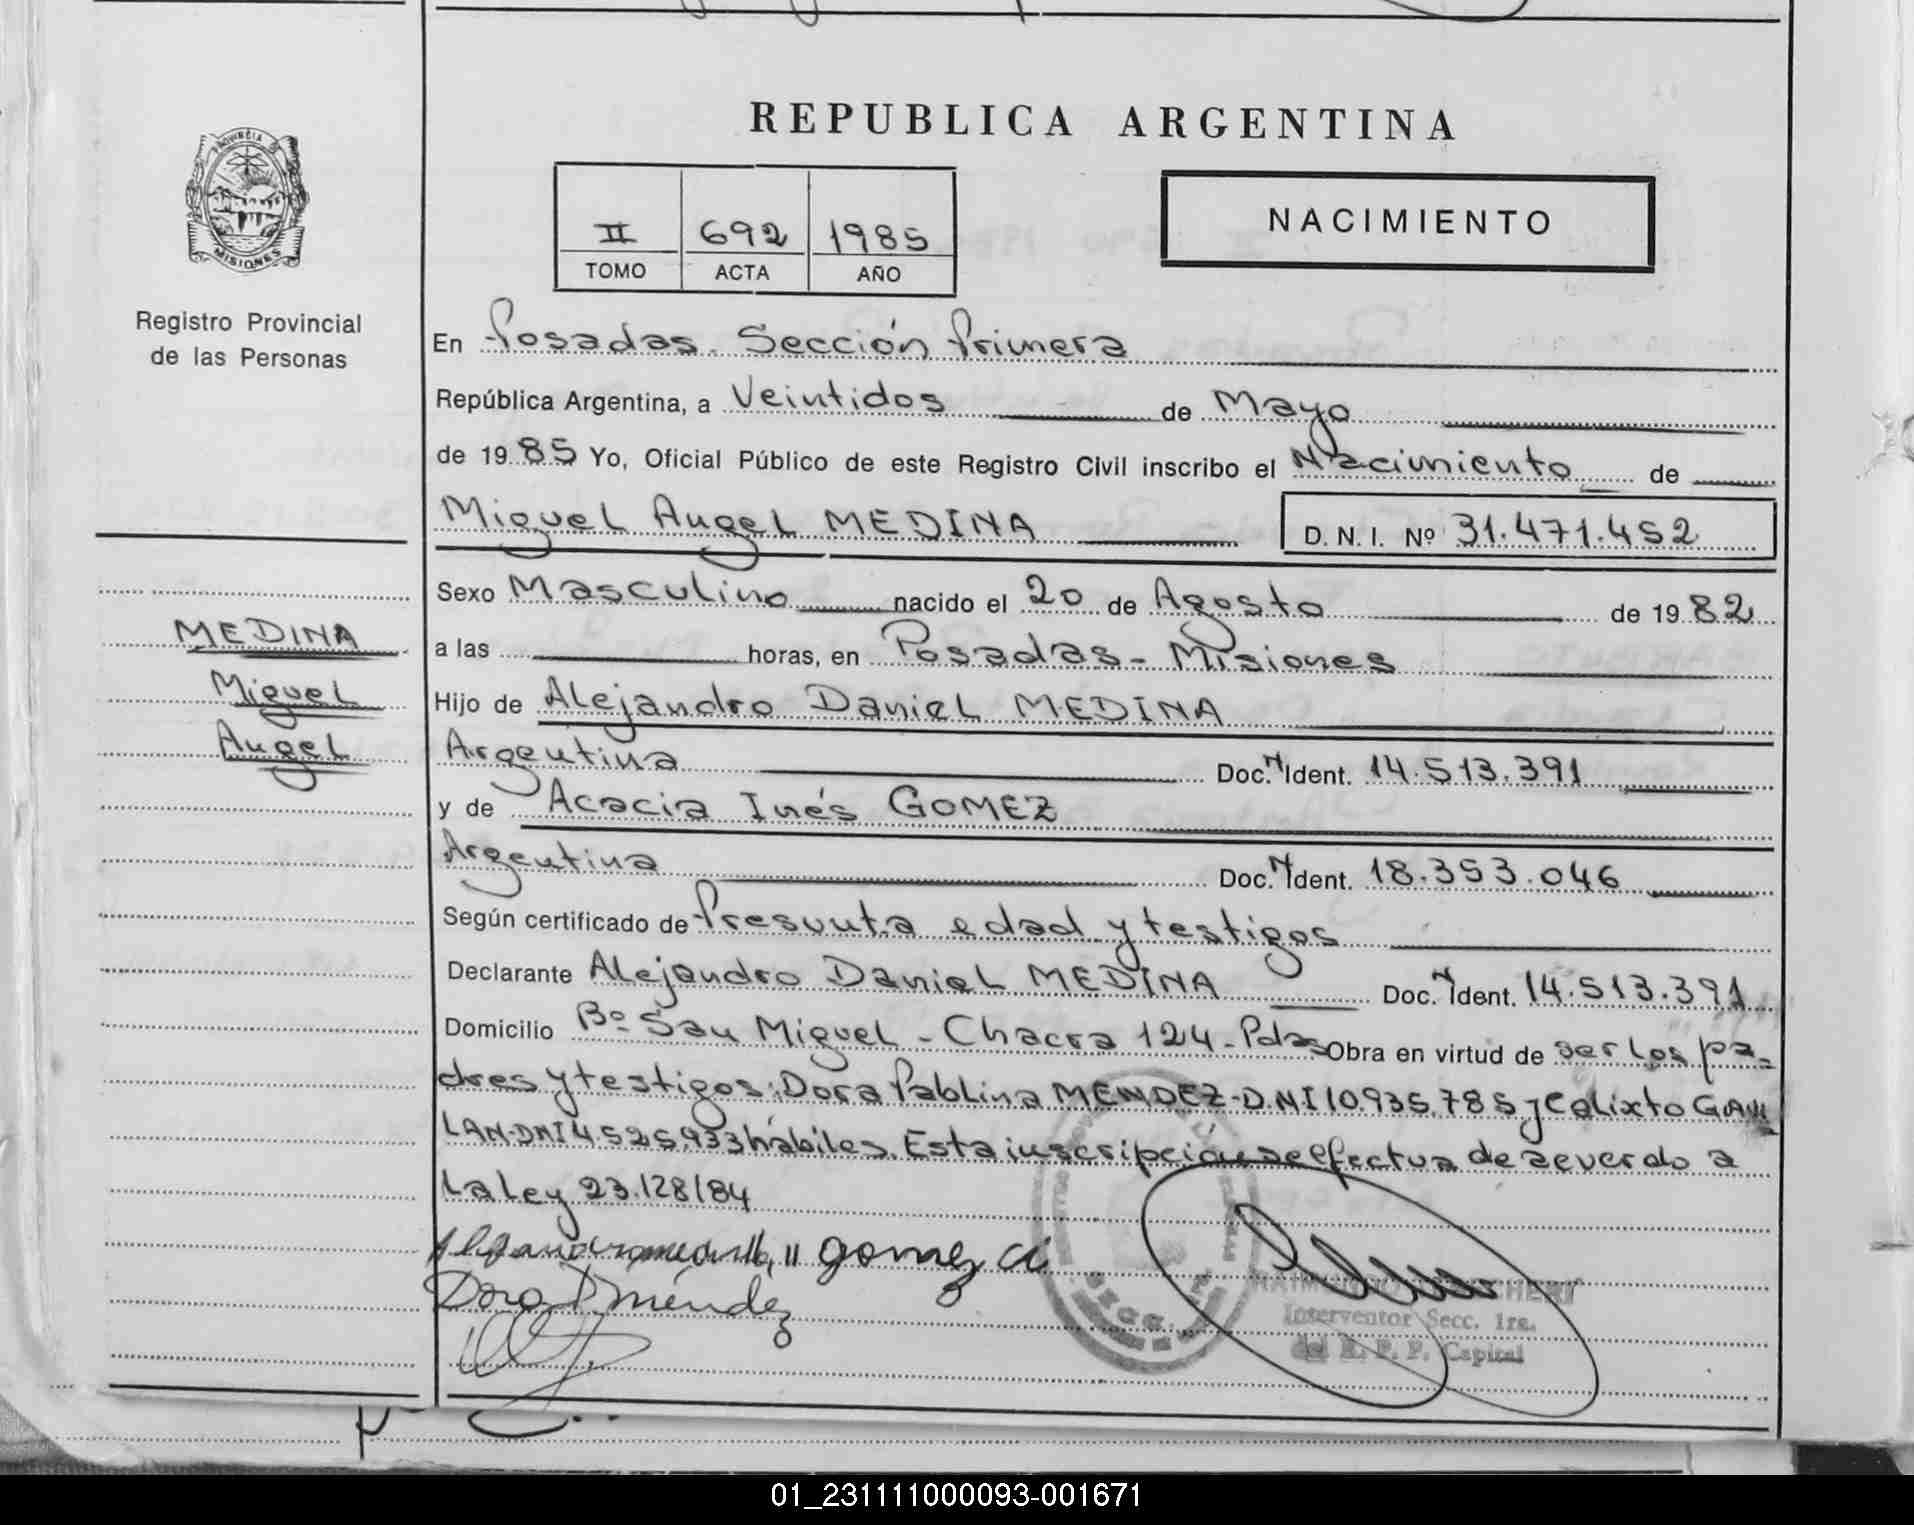 REPUBLICA ARGENTINA
PROVINCIA DE MISIONES
Registro Provincial
de las Personas
II 692 1985
TOMO ACTA AÑO
NACIMIENTO
En Posadas. Sección Primera
República Argentina, a Veintidos de Mayo
de 1985 Yo, Oficial Público de este Registro Civil inscribo el Nacimiento de
Miguel Angel MEDINA D. N. I. Nº 31.471.452
Sexo Masculino nacido el 20 de Agosto de 1982
a las horas, en Posadas - Misiones
Hijo de Alejandro Daniel MEDINA
Argentina Doc. N Ident. 14.513.391
y de Acacia Inés GOMEZ
Argentina Doc. N Ident. 18.353.046
Según certificado de Presunta edad y testigos
Declarante Alejandro Daniel MEDINA Doc. N Ident. 14.513.391
Domicilio Bº San Miguel - Chacra 124 - Pdas Obra en virtud de ser los pa-
dres y testigos: Dora Pablina MENDEZ-D.N.I 10.935.785 y Calixto
LAN-DNI 4.525.933 hábiles. Esta inscripción se efectua de acuerdo a
la ley 23.128/84
MEDINA
Miguel
Angel
gomez
Dora P méndez
Interventor Secc. 1ra.
del R. P. P. Capital
01_231111000093-001671